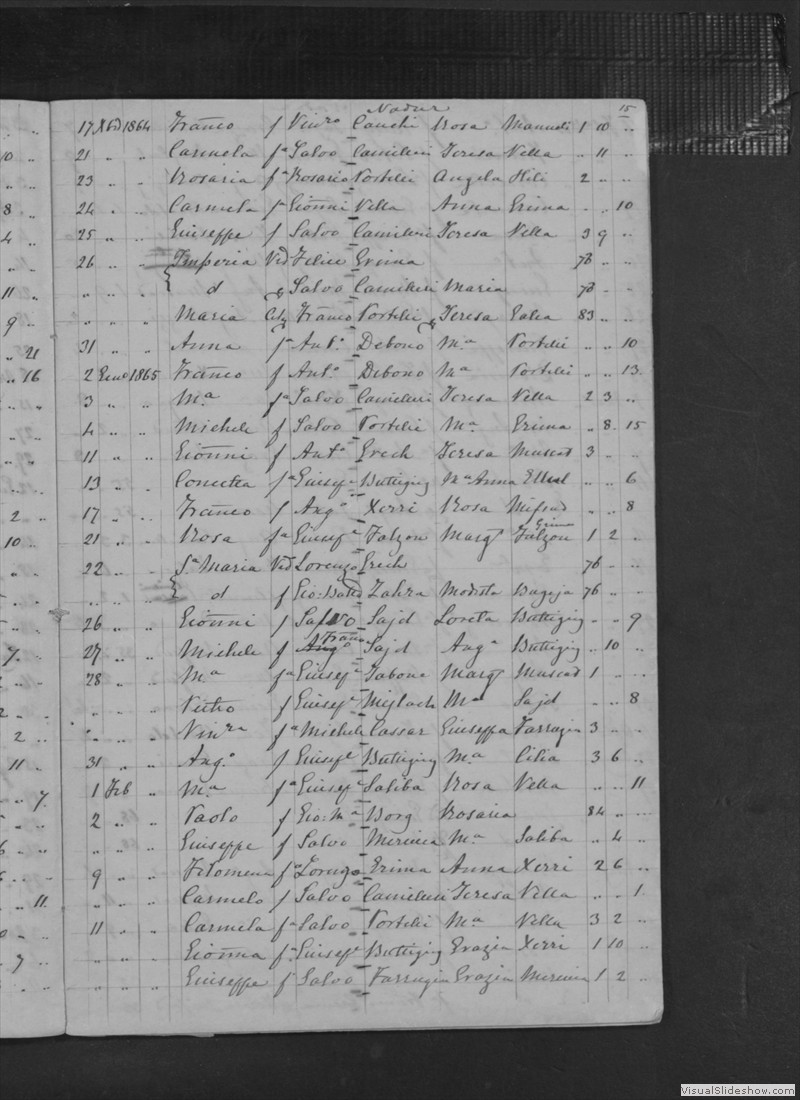 Nadur 15
17 Xbre 1864 Franco f Vinzo Cauchi Rosa Manueli 1 10 ..
21 .. .. Carmela fa Salvo Camilleri Teresa Vella .. 11 ..
23 .. .. Rosaria fa Rosario Portelli Angela Hili 2 .. ..
24 .. .. Carmela fa Gionni Vella Anna Grima .. .. 10
25 .. .. Giuseppe f Salvo Camilleri Teresa Vella 3 9 ..
26 .. .. Imperia Vid Felice Grima 78 .. ..
.. .. .. d Salvo Camilleri Maria 78 .. ..
.. .. .. Maria Franco Portelli Teresa Galea 83 .. ..
31 .. .. Anna fa Anto Debono Ma Portelli .. .. 10
2 Geno 1865 Franco f Anto Debono Ma Portelli .. .. 13
3 .. .. Ma fa Salvo Camilleri Teresa Vella 2 3 ..
4 .. .. Michele f Salvo Portelli Ma Grima .. 8 15
11 .. .. Gionni f Anto Grech Teresa Muscat 3 .. ..
13 .. .. Concetta fa Giusepe Buttigieg Ma Anna .. .. 6
17 .. .. Franco f Ango Xerri Rosa Mifsud .. .. 8
Grima
21 .. .. Rosa fa Giusepe Falzon Marga Falzon 1 2 ..
22 .. .. Sa Maria Vid Lorenzo Grech 76 .. ..
.. .. .. d f Gio: Batta Zahra Modesta Bugeja 76 .. ..
26 .. .. Gionni f Salvo Sajd Loreta Buttigieg .. .. 9
Franco
27 .. .. Michele f Ango Sajd Anga Buttigieg .. 10 ..
28 .. .. Ma fa Giusepe Tabone Marga Muscat 1 .. ..
.. .. .. f Giusepe Ma Sajd .. .. 8
.. .. .. Vinza fa Michele Cassar Giuseppa Farrugia 3 .. ..
31 .. .. Ango f Giusepe Buttigieg Ma Cilia 3 6 ..
1 Feb .. Ma fa Giusepe Saliba Rosa Vella .. .. 11
2 .. .. Paolo f Gio: Ma Borg Rosaria 84 .. ..
.. .. .. Giuseppe f Salvo Mercieca Ma Saliba .. 4 ..
9 .. .. Filomena fa Lorenzo Grima Anna Xerri 2 6 ..
.. .. .. Carmelo f Salvo Camilleri Teresa Vella .. .. 1
11 .. .. Carmela fa Salvo Portelli Ma Vella 3 2 ..
.. .. Gionna fa Giusepe Buttigieg Grazia Xerri 1 10 ..
Giuseppe f Salvo Farrugia Grazia Mercieca 1 2 ..
VisualSlideshow.com